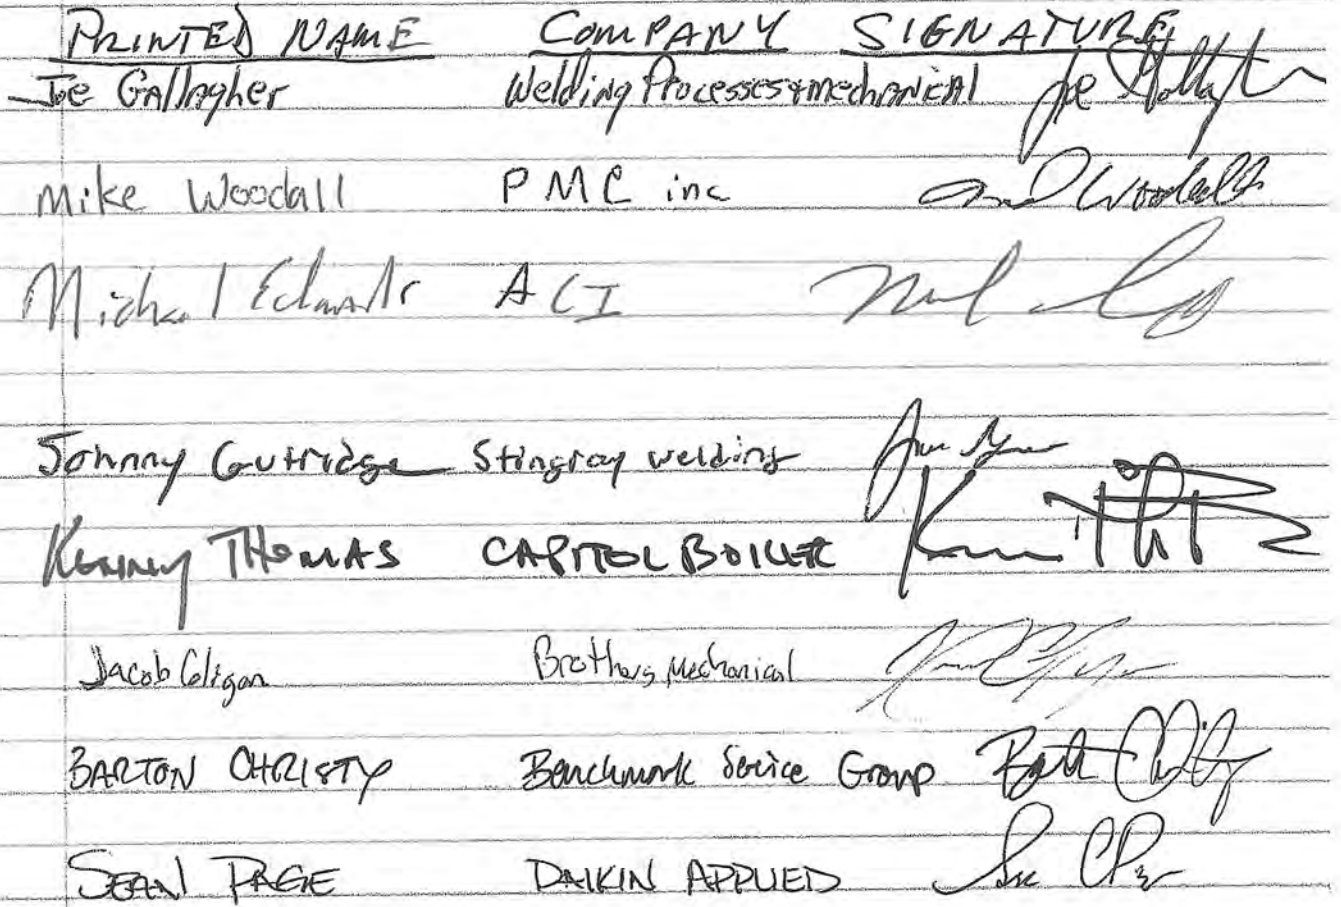 PRINTED NAME COMPANY SIGNATURE
Joe Gallagher Welding Processes + mechanical Joe Gallagher
Mike Woodall PMC inc Woodall
Michael Edwards ACI
Johnny Gutridge Stingray welding
Kenny THOMAS CAPITOL BOILER
Jacob Coligan Brothers Mechanical
BARTON CHRISTY Benchmark Service Group
SEAN PAGE DAIKIN APPLIED